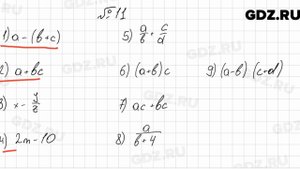 №11
GDZ.RU
1) a - (b+c)
5) a/b + c/d
2) a+bc
6) (a+b)c
9) (a-b) (c+d)
3) x - y/z
7) ac + bc
4) 2m - 10
8) a/(b+4)
GDZ.RU